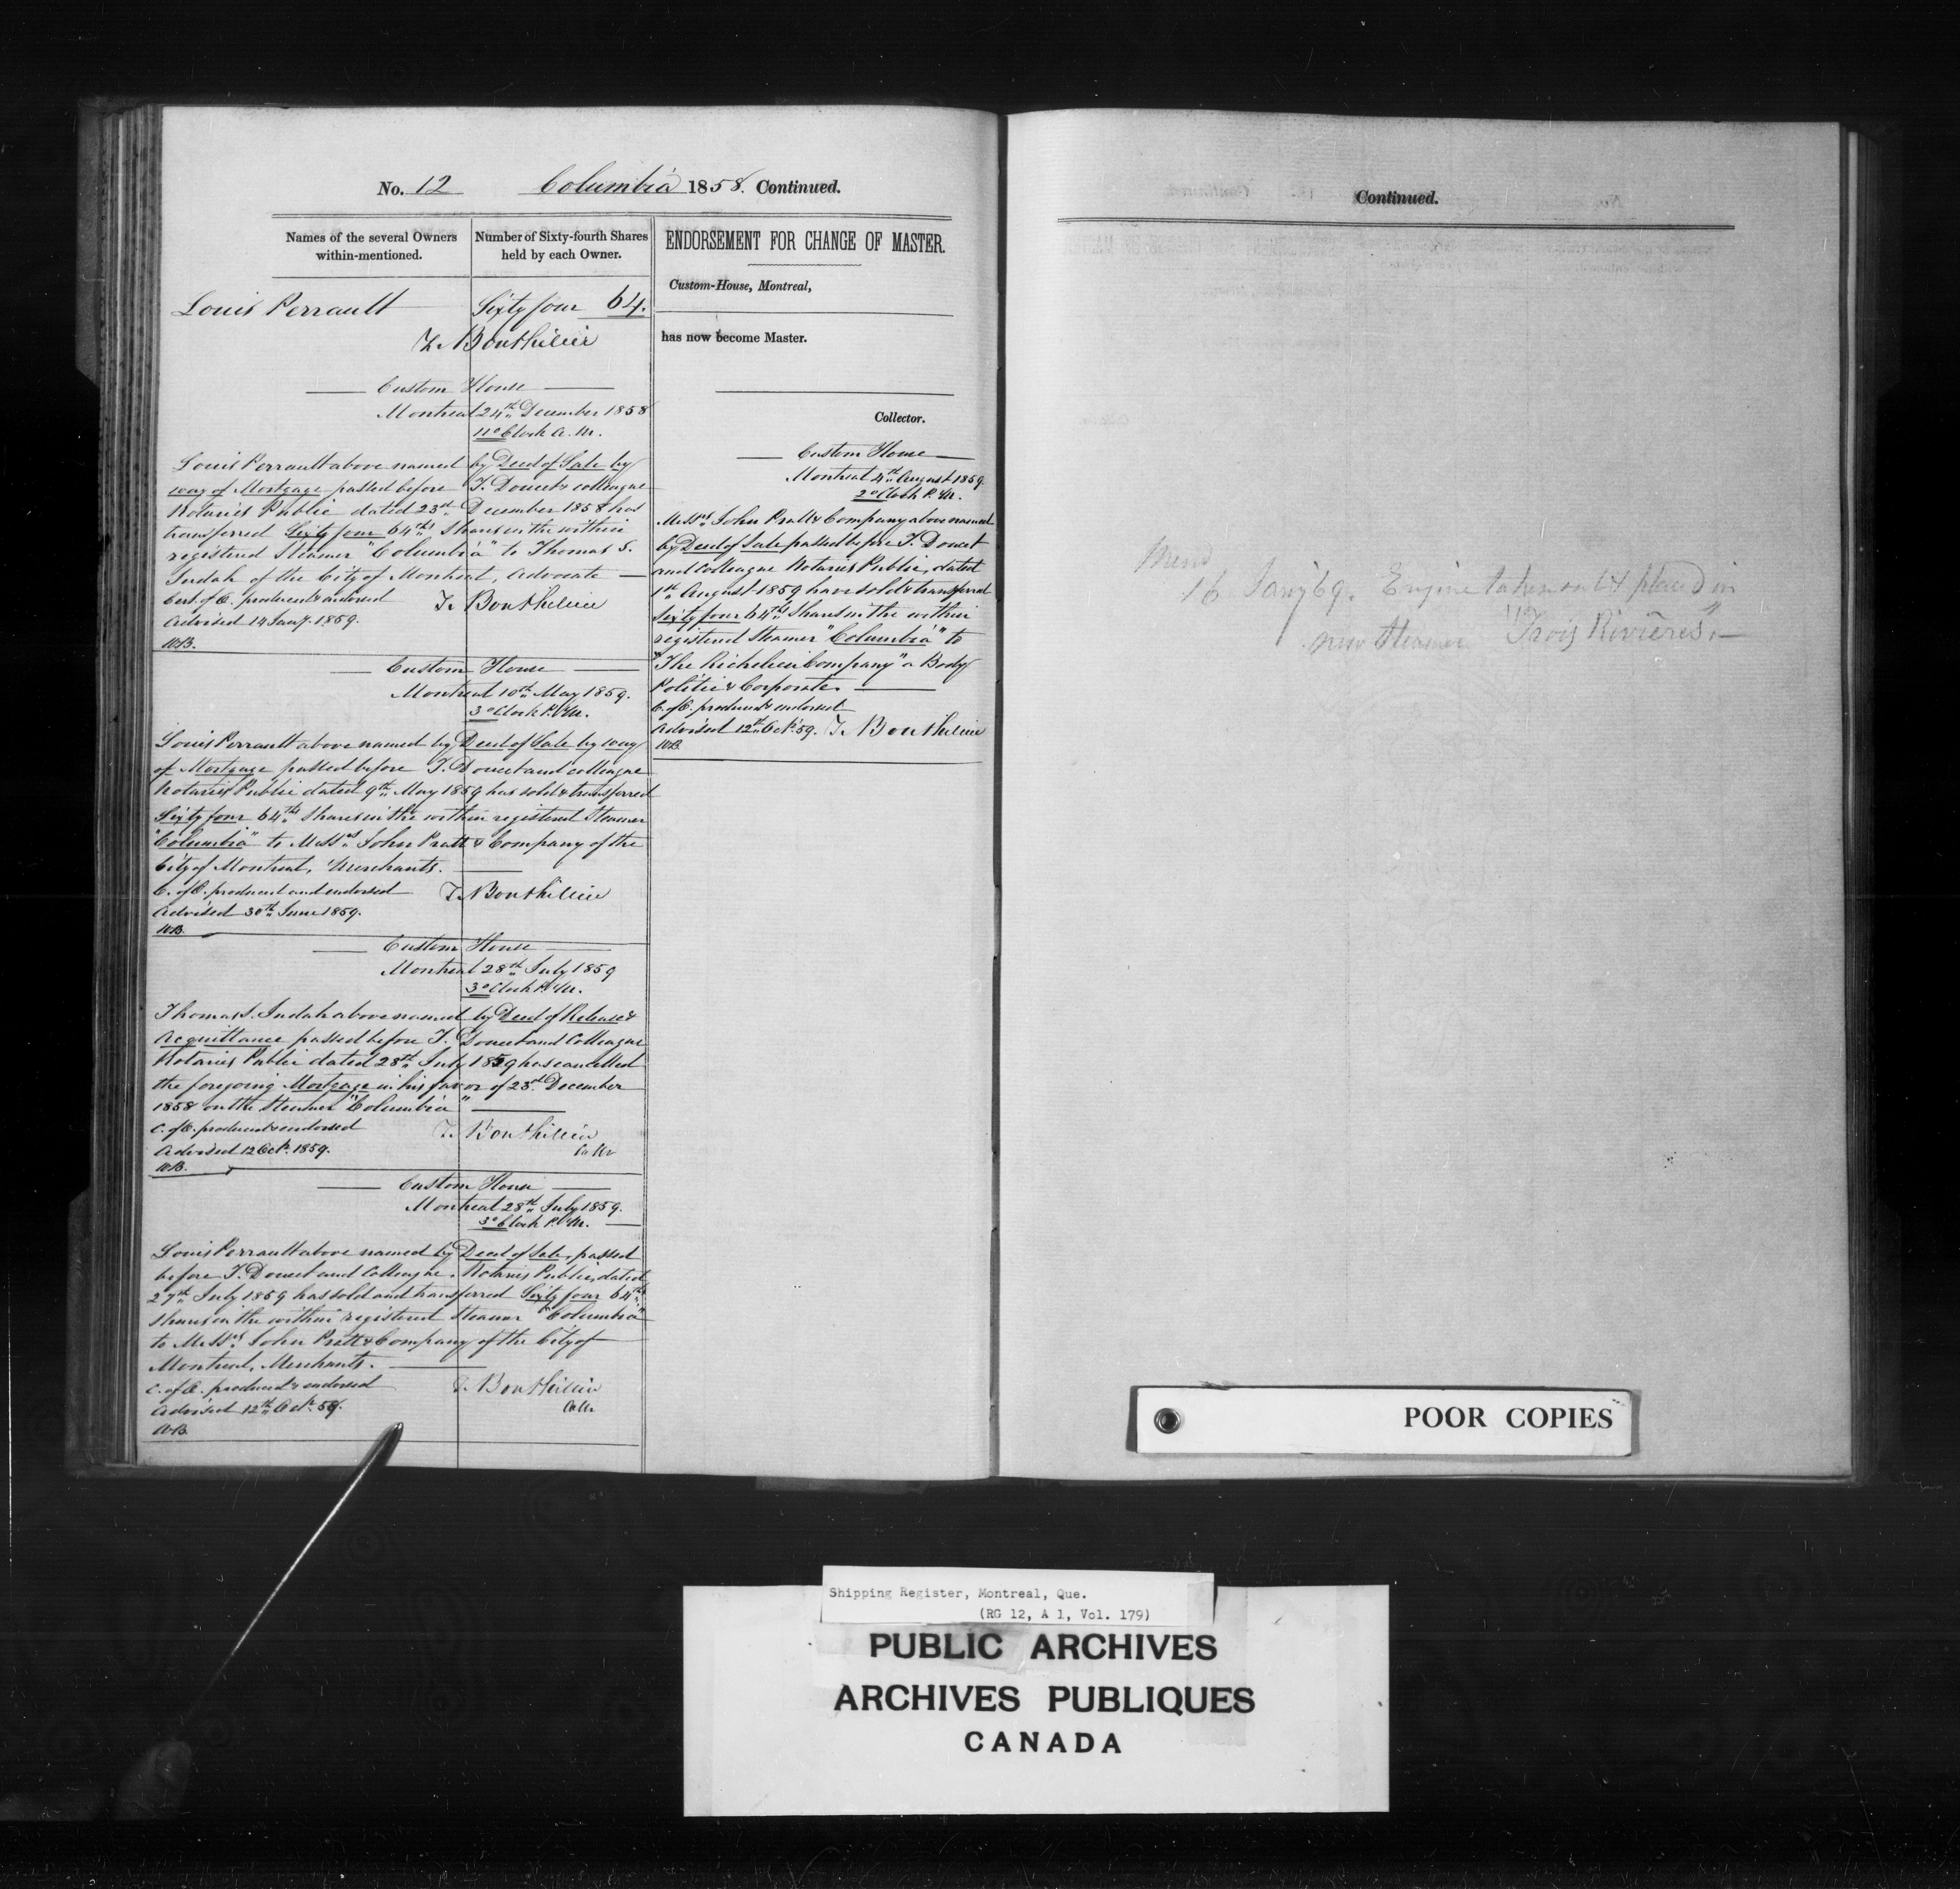 No. 12 Columbia 1858. Continued.
Names of the several Owners within-mentioned.
Number of Sixty-fourth Shares held by each Owner.
Louis Perrault Sixty four 64.
T. Bouthillier
Custom House
Montreal 24th December 1858
11 o'Clock A.M.
Louis Perrault above named by Deed of Sale by
way of Mortgage passed before T. Doucet & colleague
Notaries Public dated 23rd December 1858 has
transferred Sixty four 64ths Shares in the within
registered Steamer "Columbia" to Thomas S.
Judah of the City of Montreal, Advocate
Cert. of O. produced & endorsed T. Bouthillier
Advised 14 Jany. 1859.
WB.
Custom House
Montreal 10th May 1859.
3 o'Clock P.M.
Louis Perrault above named by Deed of Sale by way
of Mortgage passed before T. Doucet and colleague
Notaries Public dated 9th May 1859 has sold & transferred
Sixty four 64ths Shares in the within registered Steamer
"Columbia" to Messrs John Pratt & Company of the
City of Montreal, Merchants.
C. of O. produced and endorsed T. Bouthillier
Advised 30th June 1859.
WB.
Custom House
Montreal 28th July 1859
3 o'Clock P.M.
Thomas S. Judah above named by Deed of Release &
Acquittance passed before T. Doucet and Colleague
Notaries Public dated 28th July 1859 has cancelled
the foregoing Mortgage in his favor of 23rd December
1858 on the Steamer "Columbia"
C. of O. produced & endorsed T. Bouthillier
Advised 12 Oct. 1859. Collr
WB.
Custom House
Montreal 28th July 1859.
3 o'Clock P.M.
Louis Perrault above named by Deed of Sale, passed
before T. Doucet and Colleague, Notaries Public, dated
27th July 1859 has sold and transferred Sixty four 64ths
Shares in the within registered Steamer "Columbia"
to Messrs John Pratt & Company of the City of
Montreal, Merchants.
C. of O. produced & endorsed T. Bouthillier
Advised 12th Oct. 59. Collr
WB.
ENDORSEMENT FOR CHANGE OF MASTER.
Custom-House, Montreal,
has now become Master.
Collector.
Custom House
Montreal 4th August 1859.
2 o'Clock P.M.
Messrs John Pratt & Company above named
by Deed of Sale passed before T. Doucet
and Colleague Notaries Public, dated
1st August 1859 have sold & transferred
Sixty four 64ths Shares in the within
registered Steamer "Columbia" to
"The Richelieu Company" a Body
Politic & Corporate.
C. of O. produced & endorsed
Advised 12th Oct. 59. T. Bouthillier
WB.
Continued.
Mem
16 Jany 69. Engine taken out & placed in
new Steamer "Trois Rivières"
POOR COPIES
Shipping Register, Montreal, Que.
(RG 12, A 1, Vol. 179)
PUBLIC ARCHIVES
ARCHIVES PUBLIQUES
CANADA